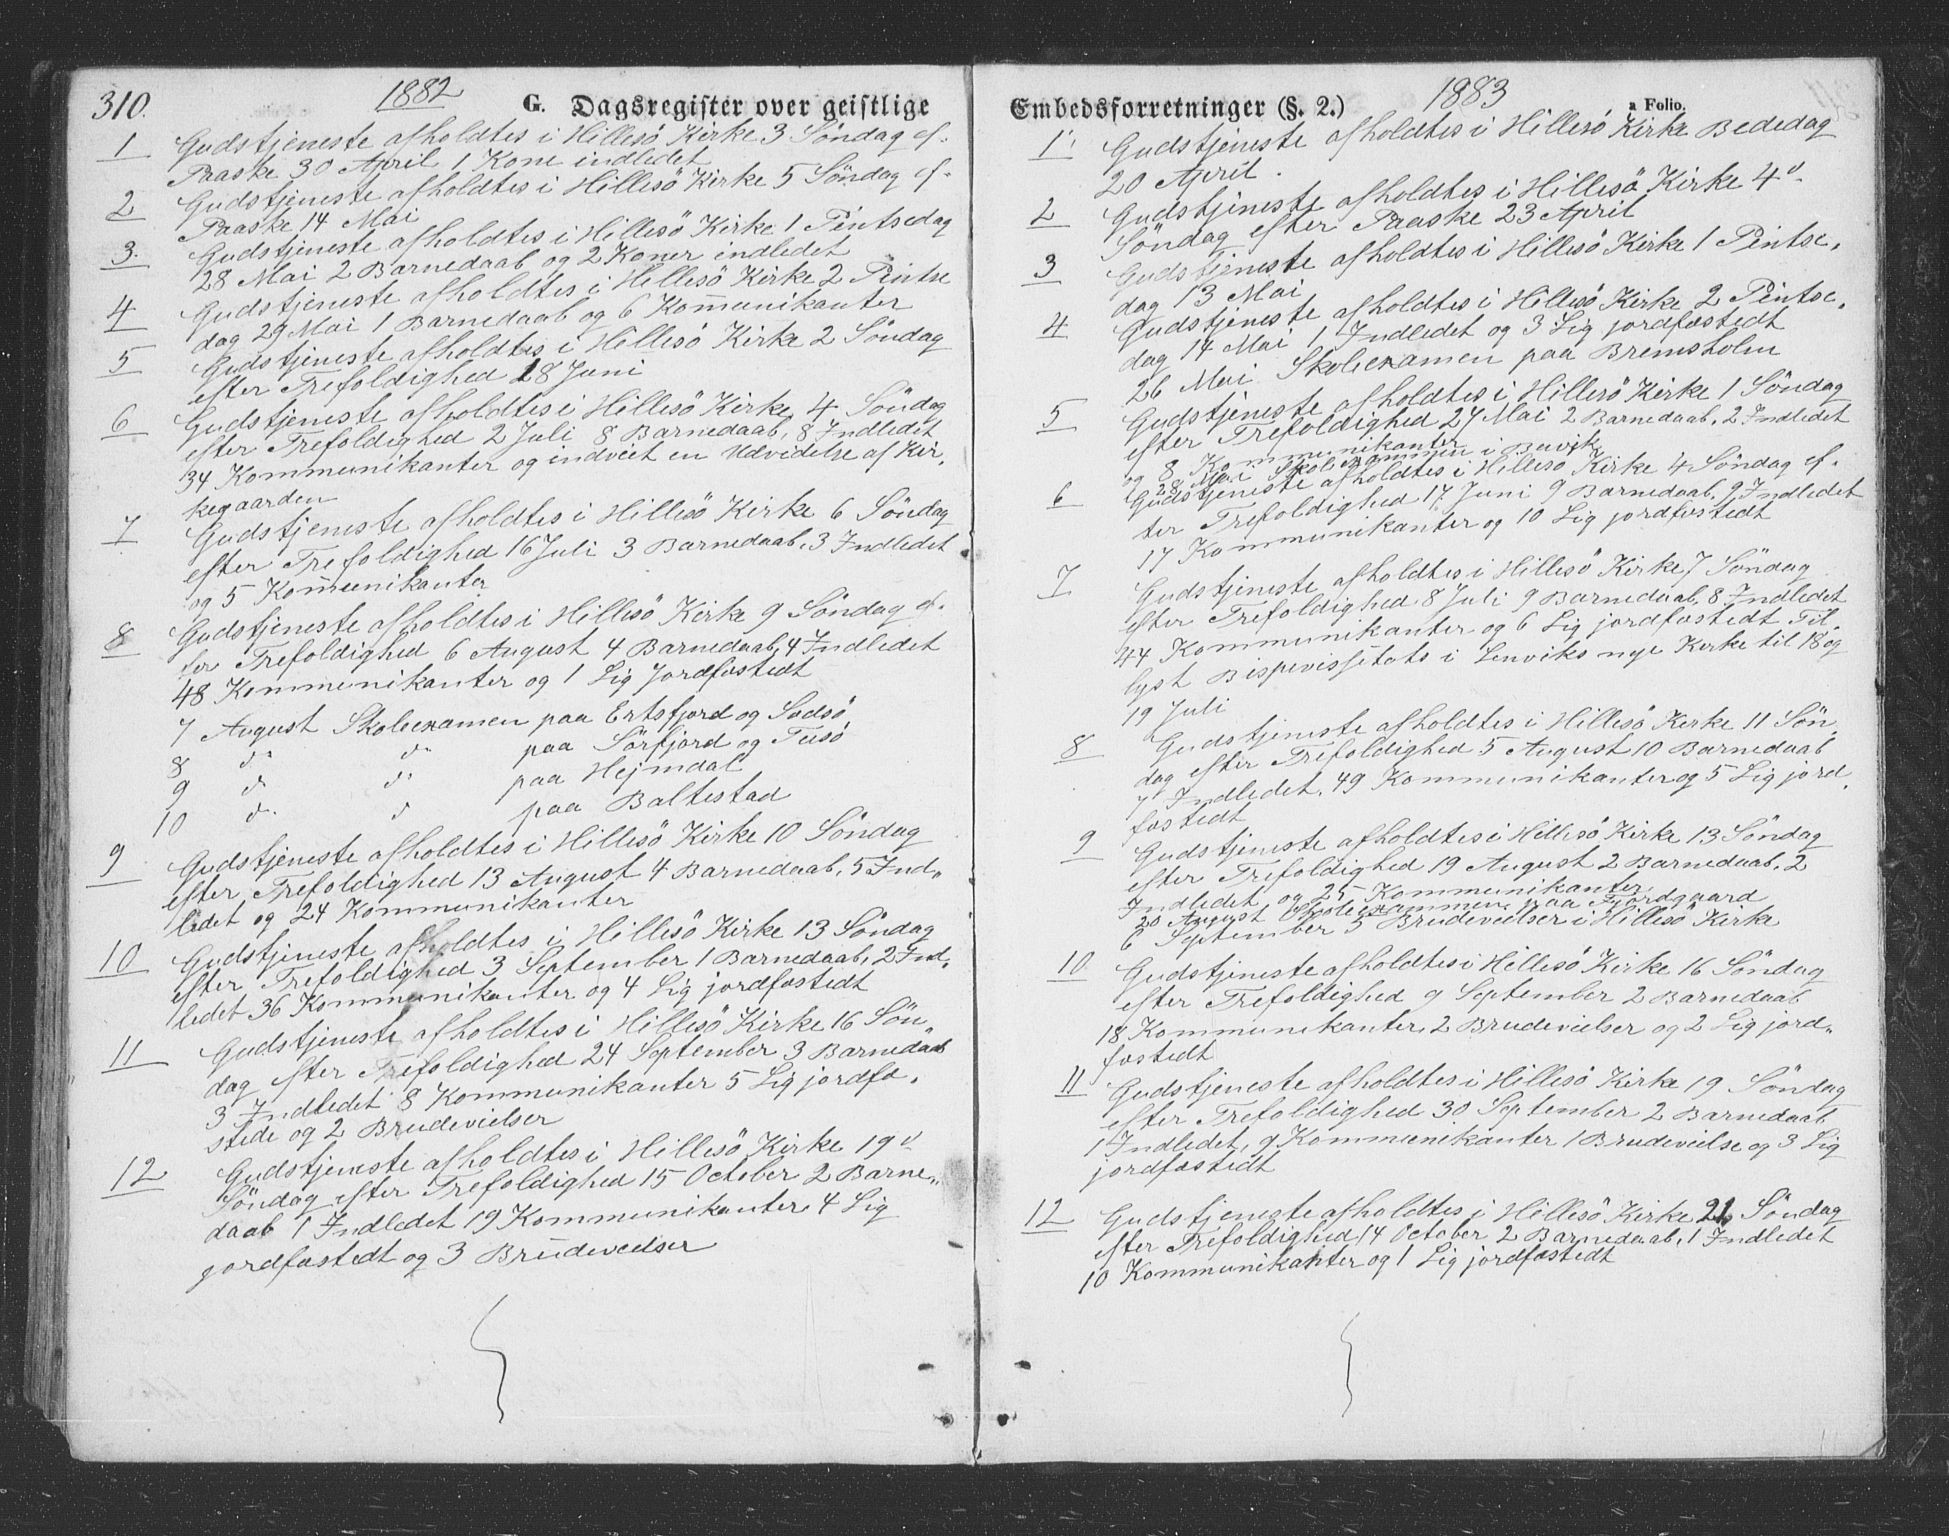 310.
1882
G. Dagsregister over geistlige
1 Gudstjeneste afholdtes i Hillesö Kirke 3 Söndag ef.
Paaske 30 April 1 Kone indledet
2 Gudstjeneste afholdtes i Hillesö Kirke 5 Söndag ef.
Paaske 14 Mai
3. Gudstjeneste afholdtes i Hillesö Kirke 1 Pintsedag
28 Mai 2 Barnedaab og 2 Koner indledet
4 Gudstjeneste afholdtes i Hillesö Kirke 2 Pintse
dag 29 Mai 1 Barnedaab og 6 Kom̄unikanter
5 Gudstjeneste afholdtes i Hillesö Kirke 2 Söndag
efter Trefoldighed 18 Juni
6 Gudstjeneste afholdtes i Hillesö Kirke 4 Söndag
efter Trefoldighed 2 Juli 8 Barnedaab, 8 Indledet
34 Kommunikanter og indviet en Udvidelse af Kir,
kegaarden
7 Gudstjeneste afholdtes i Hillesö Kirke 6 Söndag
efter Trefoldighed 16 Juli 3 Barnedaab, 3 Indledet
og 5 Kom̄unikanter
8 Gudstjeneste afholdtes i Hillesö Kirke 9 Söndag ef.
ter Trefoldighed 6 August 4 Barnedaab, 4 Indledet
48 Kommunikanter og 1 Lig Jordfæstedt
7 August Skoleexamen paa Ertsfjord og
8 d° d° paa Sörfjord og
9 d° d° paa Hejmdal
10 d° d° paa Baltestad
9 Gudstjeneste afholdtes i Hillesö Kirke 10 Söndag
efter Trefoldighed 13 August 4 Barnedaab, 5 Ind„
ledet og 24 Kommunikanter
10 Gudstjeneste afholdtes i Hillesö Kirke 13 Söndag
efter Trefoldighed 3 September 1 Barnedaab, 2 Ind„
ledet 36 Kommunikanter og 4 Lig jordfæstedt
11 Gudstjeneste afholdtes i Hillesö Kirke 16 Sön„
dag efter Trefoldighed 24 September 3 Barnedaab
3 Indledet 8 Kommunikanter 5 Lig jordfæ,
stede og 2 Brudevielser
12 Gudstjeneste afholdtes i Hillesö Kirke 19d
Söndag efter Trefoldighed 15 October 2 Barne„
daab 1 Indledet 19 Kommunikanter, 4 Lig
jordfæstedt og 3 Brudevielser
1883
Embedsforretninger (§. 2.)
a Folio.
1 Gudstjeneste afholdtes i Hillesö Kirke Bededag
20 April.
2 Gudstjeneste afholdtes i Hillesö Kirke 4d
Söndag efter Paaske 23 April
3 Gudstjeneste afholdtes i Hillesö Kirke 1 Pintse,
dag 13 Mai
4 Gudstjeneste afholdtes i Hillesö Kirke 2 Pintse,
dag 14 Mai 1 Indledet og 3 Lig jordfæstedt
26 Mai Skoleexamen paa Bremsholm
5 Gudstjeneste afholdtes i Hillesö Kirke 1 Söndag
efter Trefoldighed 27 Mai 2 Barnedaab, 2 Indledet
og 8 Kommunikanter
28 Mai Skoleexammen i Buvik
6 Gudstjeneste afholdtes i Hillesö Kirke 4 Söndag ef.
ter Trefoldighed 17 Juni 9 Barnedaab, 9 Indledet
17 Kommunikanter og 10 Lig jordfæstedt
7 Gudstjeneste afholdtes i Hillesö Kirke 7 Söndag
efter Trefoldighed 8 Juli 9 Barnedaab, 8 Indledet
44 Kommunikanter og 6 Lig jordfæstedt Til„
lyst Bispevissitats i Lenviks nye Kirke til 18 og
19 Juli
8 Gudstjeneste afholdtes i Hillesö Kirke 11 Sön,
dag efter Trefoldighed 5 August 10 Barnedaab
7 Indledet, 49 Kommunikanter og 5 Lig jord,
fæstedt
9 Gudstjeneste afholdtes i Hillesö Kirke 13 Söndag
efter Trefoldighed 19 August 2 Barnedaab, 2
Indledet og 25 Kommunikanter
20 August Skoleexammen paa Fjordgaard
6 September 5 Brudevielser i Hillesö Kirke
10 Gudstjeneste afholdtes i Hillesö Kirke 16 Söndag
efter Trefoldighed 9 September 2 Barnedaab
18 Kommunikanter, 2 Brudevielser og 2 Lig jord„
fæstedt
11 Gudstjeneste afholdtes i Hillesö Kirke 19 Söndag
efter Trefoldighed 30 September 2 Barnedaab
1 Indledet, 9 Kommunikanter 1 Brudevielse og 3 Lig
jordfæstedt
12 Gudstjeneste afholdtes i Hillesö Kirke 21 Söndag
efter Trefoldighed 14 October 2 Barnedaab, 1 Indledet
10 Kommunikanter og 1 Lig jordfæstedt